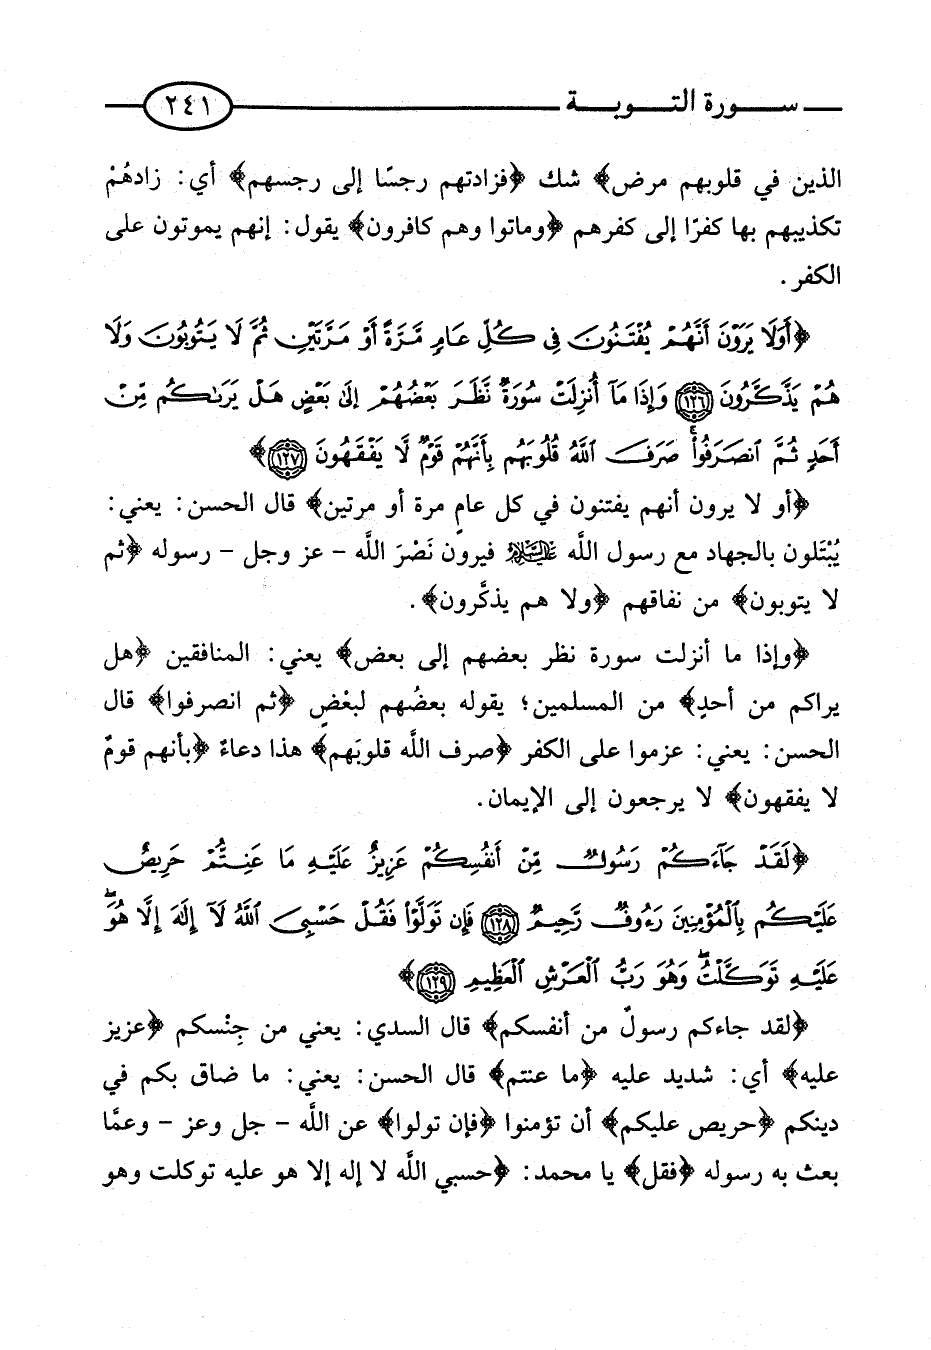 سورة التوبة ٢٤١
الذين في قلوبهم مرض﴾ شك ﴿فزادتهم رجسًا إلى رجسهم﴾ أي: زادهُمْ
تكذيبهم بها كفرًا إلى كفرهم ﴿وماتوا وهم كافرون﴾ يقول: إنهم يموتون على
الكفر.
﴿أَوَلَا يَرَوْنَ أَنَّهُمْ يُفْتَنُونَ فِي كُلِّ عَامٍ مَّرَّةً أَوْ مَرَّتَيْنِ ثُمَّ لَا يَتُوبُونَ وَلَا
هُمْ يَذَّكَّرُونَ ١٢٦ وَإِذَا مَا أُنزِلَتْ سُورَةٌ نَّظَرَ بَعْضُهُمْ إِلَىٰ بَعْضٍ هَلْ يَرَىٰكُم مِّنْ
أَحَدٍ ثُمَّ انصَرَفُوا صَرَفَ اللَّهُ قُلُوبَهُم بِأَنَّهُمْ قَوْمٌ لَّا يَفْقَهُونَ ١٢٧﴾
﴿أو لا يرون أنهم يفتنون في كل عامٍ مرة أو مرتين﴾ قال الحسن: يعني:
يُبْتَلون بالجهاد مع رسول اللَّه عليه السلام فيرون نَصْرَ اللَّه - عز وجل - رسوله ﴿ثم
لا يتوبون﴾ من نفاقهم ﴿ولا هم يذكَّرون﴾.
﴿وإذا ما أنزلت سورة نظر بعضهم إلى بعض﴾ يعني: المنافقين ﴿هل
يراكم من أحدٍ﴾ من المسلمين؛ يقوله بعضُهم لبعْضٍ ﴿ثم انصرفوا﴾ قال
الحسن: يعني: عزموا على الكفر ﴿صرف اللَّه قلوبَهم﴾ هذا دعاءٌ ﴿بأنهم قومٌ
لا يفقهون﴾ لا يرجعون إلى الإيمان.
﴿لَقَدْ جَاءَكُمْ رَسُولٌ مِّنْ أَنفُسِكُمْ عَزِيزٌ عَلَيْهِ مَا عَنِتُّمْ حَرِيصٌ
عَلَيْكُم بِالْمُؤْمِنِينَ رَءُوفٌ رَّحِيمٌ ١٢٨ فَإِن تَوَلَّوْا فَقُلْ حَسْبِيَ اللَّهُ لَا إِلَٰهَ إِلَّا هُوَ
عَلَيْهِ تَوَكَّلْتُ وَهُوَ رَبُّ الْعَرْشِ الْعَظِيمِ ١٢٩﴾
﴿لقد جاءكم رسولٌ من أنفسكم﴾ قال السدي: يعني من جِنْسكم ﴿عزيز
عليه﴾ أي: شديد عليه ﴿ما عنتم﴾ قال الحسن: يعني: ما ضاق بكم في
دينكم ﴿حريص عليكم﴾ أن تؤمنوا ﴿فإن تولوا﴾ عن اللَّه - جل وعز - وعمَّا
بعث به رسوله ﴿فقل﴾ يا محمد: ﴿حسبي اللَّه لا إله إلا هو عليه توكلت وهو